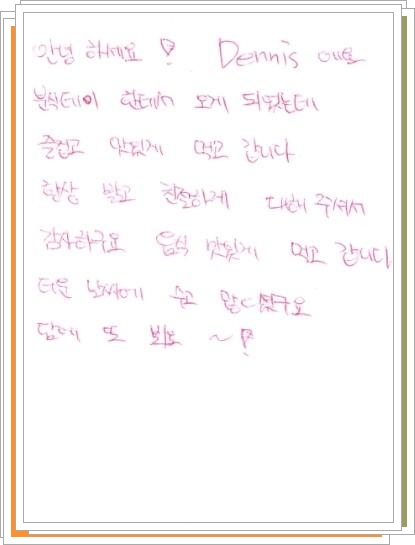 안녕 하세요 ! Dennis 에요
분식데이 한테서 오게 되었는데
즐겁고 맛있게 먹고 갑니다
항상 밝고 친절하게 대해 주셔서
감사하구요 음식 맛있게 먹고 갑니다
더운 날씨에 수고 많으셨구요
담에 또 봐요 ~!